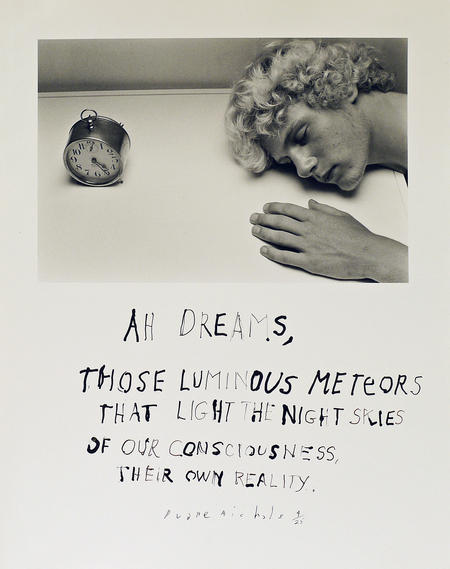 AH DREAMS,
THOSE LUMINOUS METEORS
THAT LIGHT THE NIGHT SKIES
OF OUR CONSCIOUSNESS,
THEIR OWN REALITY.
Duane Michals 4/25